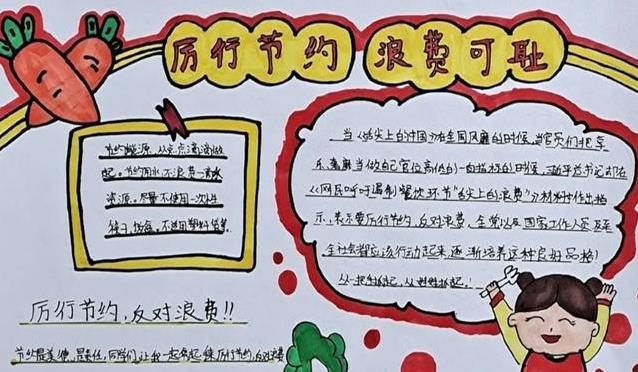 厉行节约 浪费可耻
节约能源，从点点滴滴做
起。节约用水不浪费一滴水
资源。尽量不使用一次性
筷子，饭盒，不适用塑料袋等。
当《舌尖上的中国》在全国风靡的时候，当官员们把享
乐奢靡当做自己官位高低的一向指标的时候，习近平总书记却在
《网民呼吁遏制餐饮环节"舌尖上的浪费"》材料作出指
示，表示要厉行节约，反对浪费，全党以及国家工作人员及至
全社会都应该行动起来，逐渐培养这种良好品格！
从一把手抓起，从 抓起。
厉行节约，反对浪费！！
节约是美德，是责任，同学们，让我一起 厉行节约，反对浪费